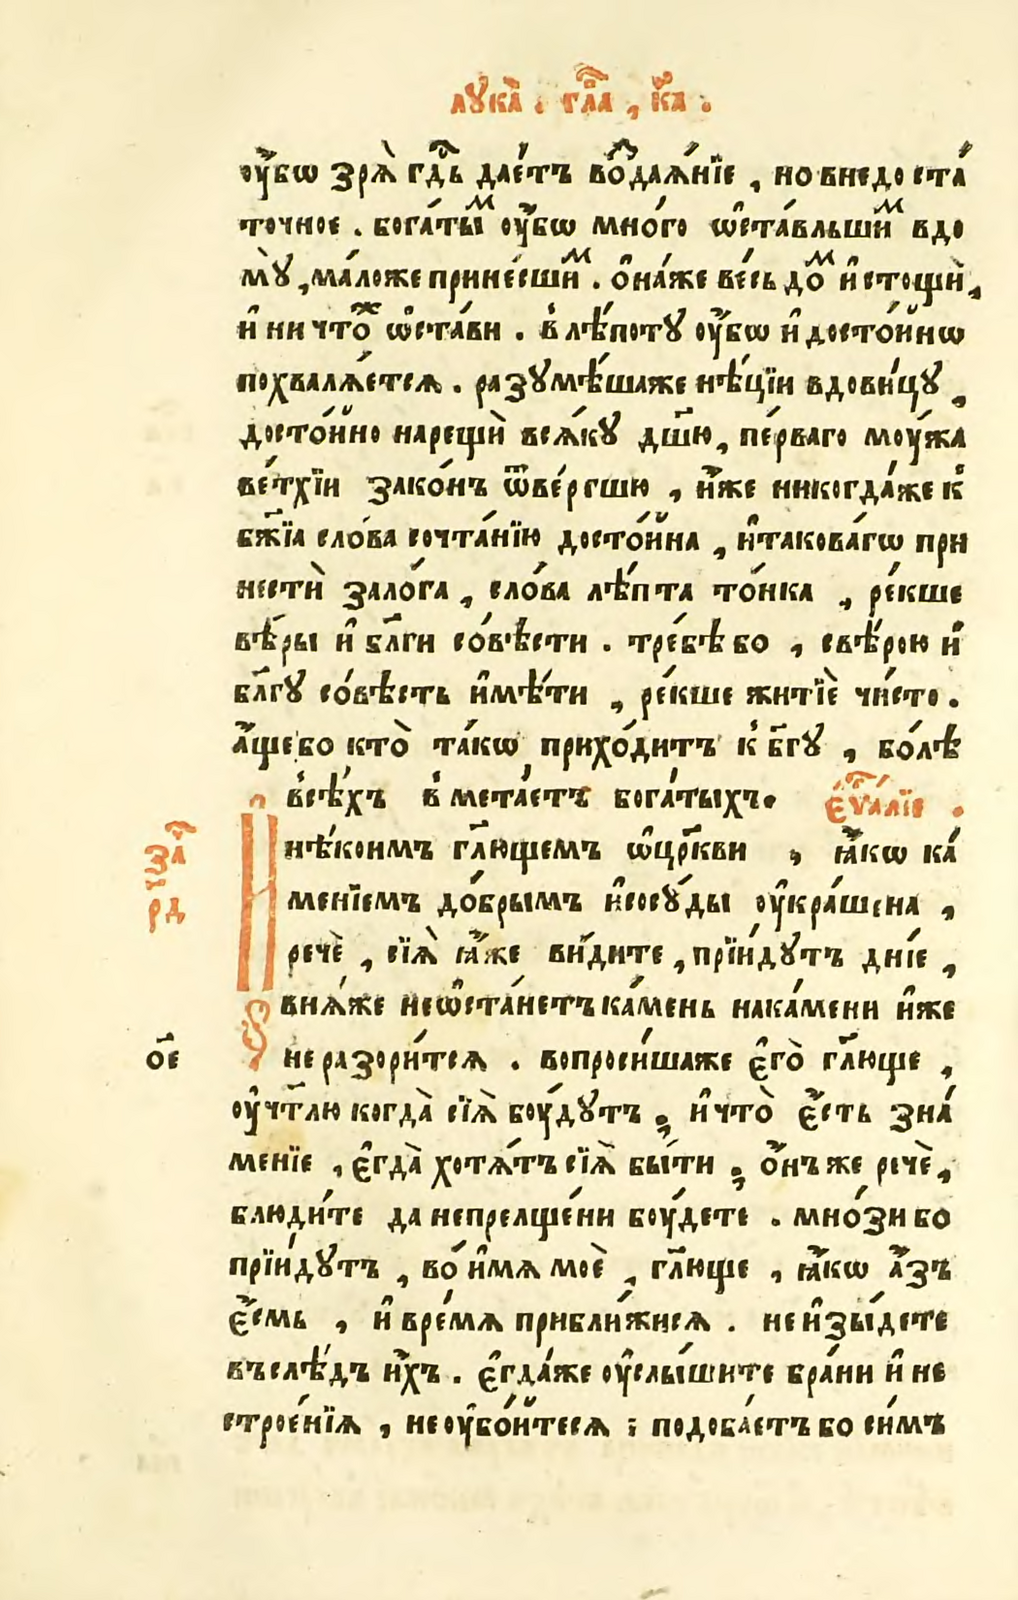 лꙋка̀ . гл҃а , к҃а .
ᲂу҆́бѡ зрѧ̀ гд҇ь дае́тъ во́здаѧ́нїе , но внедоста́
точное . бога́тыⷨ ᲂу҆́бѡ мно́го ѡ҆ста́вльшиⷨ вдо
мꙋ̀ , ма́ложе прине́сшиⷨ . ѻ҆на́же ве́сь до́ⷨ и҆стощѝ ,
и҆ ничто́ⷤ ѡ҆ста́ви . в лѣ́потꙋ ᲂу҆́бѡ и҆ досто́йнѡ
похвалѧ́етсѧ . разꙋмѣ́шаже нѣ́цїи вдови́цꙋ ,
досто́йно нарещѝ всѧ́кꙋ дш҃ю , пе́рваго моу́жа
ве́тхїи зако́нъ ѿве́ргшю , и҆́же никогда́же к
бж҃їа сло́ва сочта́нїю досто́йна , и҆такова́гѡ при
нестѝ зало́га , сло́ва лѣ́пта то́нка , ре́кше
вѣ́ры и҆ бл҃ги со́вѣсти . тре́бѣ бо , свѣ́рою и҆
бл҃гꙋ со́вѣсть и҆мѣ́ти , ре́кше житїѐ чи́сто .
а҆́щебо кто̀ та́кѡ приходи́тъ к бг҃ꙋ , бо́лѣ
всѣ́хъ вмета́етъ бога́тыхъ . є҆ѵⷢ҇а́лїе .
за҇ч
р҃д
Нѣ́коимъ гл҃ющемъ ѡ҆цр҃кви , ꙗ҆́кѡ ка́
менїемъ до́брымъ и҆сосꙋ́ды ᲂу҆кра́шена ,
речѐ , сїѧ̀ ꙗ҆́же ви́дите , прїи́дꙋтъ дни́е ,
внѧ́же неѡ҆ста́нетъ ка́мень нака́мени и҆́же
о҃е
не разори́тсѧ . вопроси́шаже є҆го̀ гл҃юще ,
ᲂу҆чт҃лю когда̀ сїѧ̀ боу́дꙋтъ ; и҆что̀ є҆́сть зна́
менїе , є҆гда̀ хотѧ́тъ сїѧ̀ бы́ти ; ѻ҆́нъ же речѐ ,
блюди́те да непрелще́ни боу́дете . мно́зи бо
прїи́дꙋтъ , во́ и҆мѧ моѐ , гл҃юще , ꙗ҆́кѡ а҆́зъ
є҆́смь , и҆ вре́мѧ прибли́жисѧ . не и҆зы́дете
въслѣ́дъ и҆́хъ . є҆гда́же ᲂу҆слы́шите бра́ни и҆ не
строе́нїѧ , не ᲂу҆бо́йтесѧ ; подоба́етъ бо си́мъ